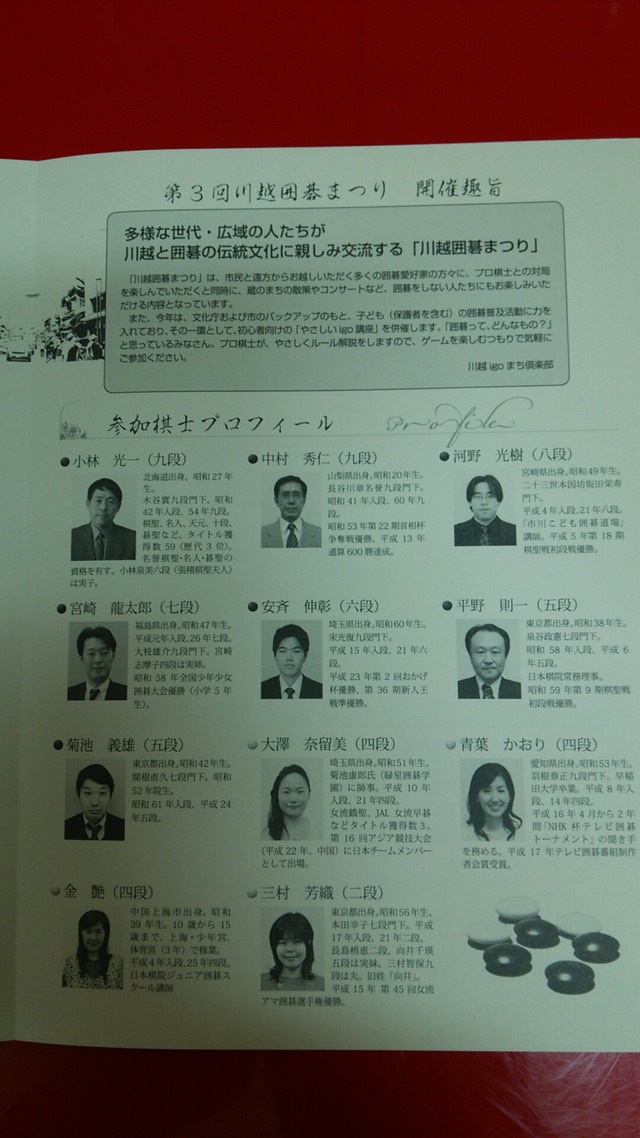 第3回川越囲碁まつり 開催趣旨
多様な世代・広域の人たちが
川越と囲碁の伝統文化に親しみ交流する「川越囲碁まつり」
「川越囲碁まつり」は、市民と遠方からお越しいただく多くの囲碁愛好家の方々に、プロ棋士との対局
を楽しんでいただくと同時に、蔵のまちの散策やコンサートなど、囲碁をしない人たちにもお楽しみいた
だける内容となっています。
また、今年は、文化庁および市のバックアップのもと、子ども（保護者を含む）の囲碁普及活動に力を
入れており、その一環として、初心者向けの「やさしいigo講座」を併催します。「囲碁って、どんなもの？」
と思っているみなさん。プロ棋士が、やさしくルール解説をしますので、ゲームを楽しむつもりで気軽に
ご参加ください。
川越igoまち倶楽部
参加棋士プロフィール Profile
小林 光一（九段）
北海道出身。昭和27年
生。
木谷實九段門下。昭和
42年入段、54年九段。
棋聖、名人、天元、十段、
碁聖など、タイトル獲
得数59（歴代3位）。
名誉棋聖・名人・碁聖の
資格を有す。小林泉美六段（張栩棋聖夫人）
は実子。
中村 秀仁（九段）
山梨県出身。昭和20年生。
長谷川章名誉九段門下。
昭和41年入段、60年九
段。
昭和53年第22期首相杯
争奪戦優勝。平成13年
通算600勝達成。
河野 光樹（八段）
宮崎県出身。昭和49年生。
二十三世本因坊坂田栄寿
門下。
平成4年入段、21年八段。
「市川こども囲碁道場」
講師。平成5年第18期
棋聖戦初段戦優勝。
宮崎 龍太郎（七段）
福島県出身。昭和47年生。
平成元年入段、26年七段。
大枝雄介九段門下。宮崎
志摩子四段は実姉。
昭和58年全国少年少女
囲碁大会優勝（小学5年
生）。
安斉 伸彰（六段）
埼玉県出身。昭和60年生。
宋光復九段門下。
平成15年入段、21年六
段。
平成23年第2回おかげ
杯優勝、第36期新人王
戦準優勝。
平野 則一（五段）
東京都出身。昭和38年生。
泉谷政憲七段門下。
昭和58年入段、平成6
年五段。
日本棋院常務理事。
昭和59年第9期棋聖戦
初段戦優勝。
菊池 義雄（五段）
東京都出身。昭和42年生。
関根直久七段門下。昭和
52年院生。
昭和61年入段、平成24
年五段。
大澤 奈留美（四段）
埼玉県出身。昭和51年生。
菊池康郎氏（緑星囲碁学
園）に師事。平成10年
入段、21年四段。
女流鶴聖、JAL女流早碁
などタイトル獲得数3。
第16回アジア競技大会
（平成22年、中国）に日本チームメンバー
として出場。
青葉 かおり（四段）
愛知県出身。昭和53年生。
羽根泰正九段門下。早稲
田大学卒業。平成8年入
段、14年四段。
平成16年4月から2年
間「NHK杯テレビ囲碁
トーナメント」の聞き手
を務める。平成17年テレビ囲碁番組制作
者会賞受賞。
金 艶（四段）
中国上海市出身。昭和
39年生。10歳から15
歳まで、上海・少年宮、
体育宮（3年）で修業。
平成4年入段、25年四段。
日本棋院ジュニア囲碁ス
クール講師
三村 芳織（二段）
東京都出身。昭和56年生。
本田幸子七段門下。平成
17年入段、21年二段。
長島梢恵二段、向井千瑛
五段は実妹。三村智保九
段は夫。旧姓「向井」。
平成15年 第45回女流
アマ囲碁選手権優勝。